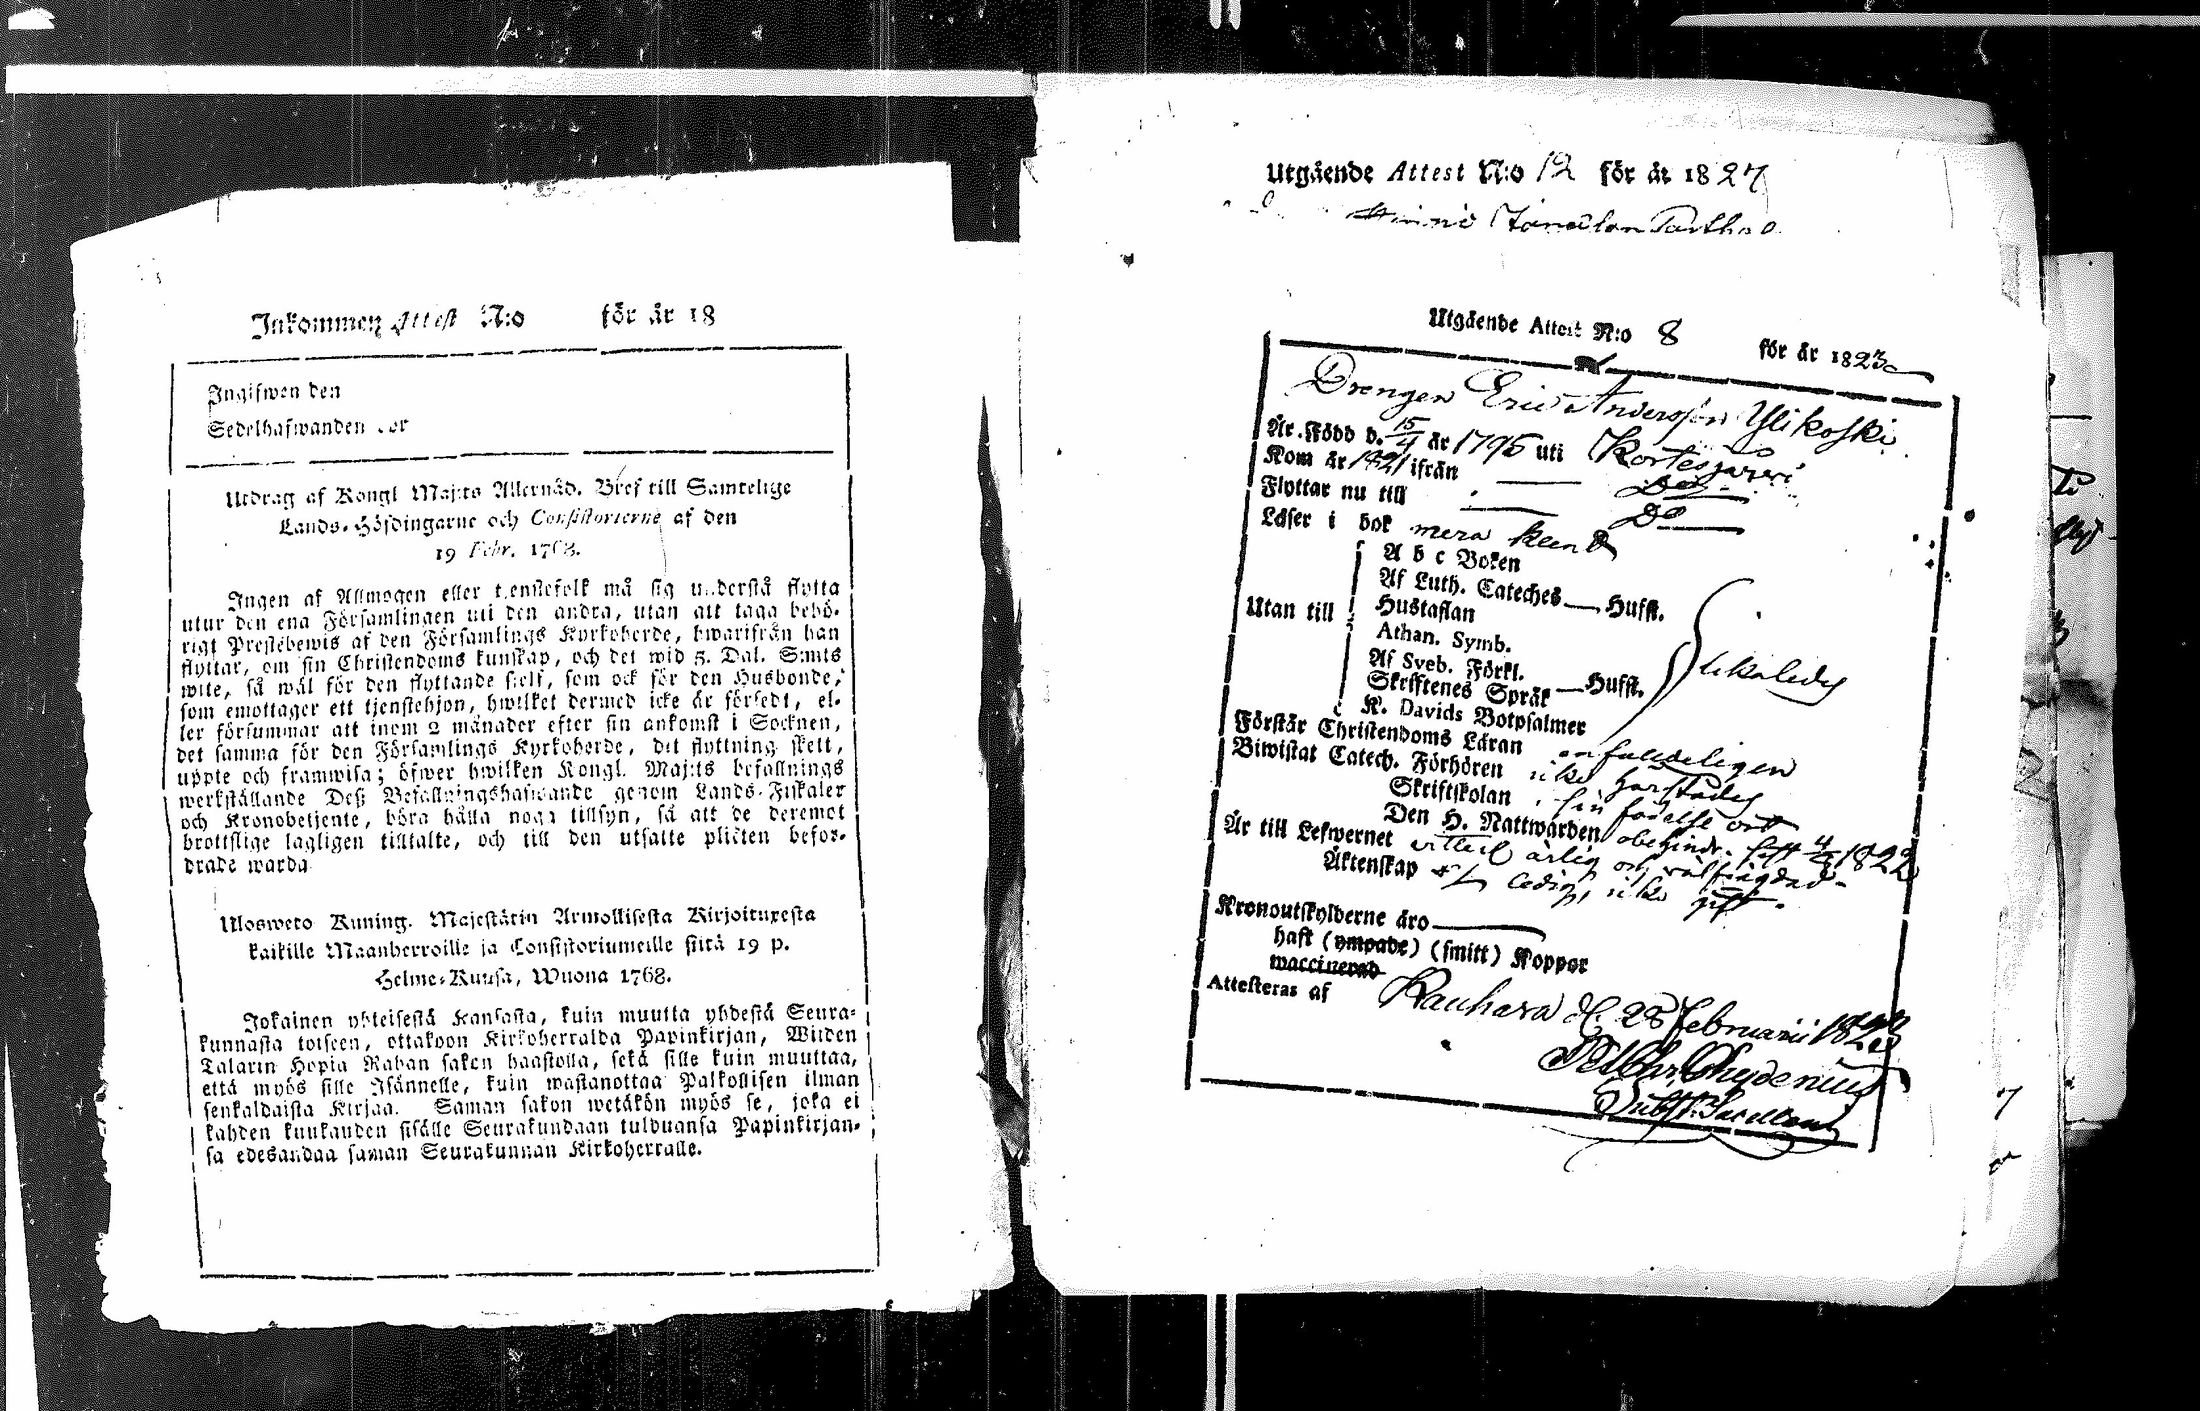 Inkommen Attest N:o för år 18
Ingifwen den
Sedelhafwanden bor
Utdrag af Kongl Maj:ts Allernåd. Bref till Samtelige
Lands-Höfdingarne och Consistorierne af den
19 Febr. 1768.
Ingen af Allmogen eller tjenstefolk må sig understå flytta
utur den ena Församlingen uti den andra, utan att taga behö-
rigt Prestebewis af den Församlings Kyrkoherde, hwarifrån han
flyttar, om sin Christendoms kunskap, och det wid 5. Dal. S:mts
wite, så wäl för den flyttande sjelf, som ock för den Husbonde,
som emottager ett tjenstehjon, hwilket dermed icke är försedt, el-
ler försummar att inom 2 månader efter sin ankomst i Socknen,
det samma för den Församlings Kyrkoherde, dit flyttning skett,
uppte och framwisa; öfwer hwilken Kongl. Maj:ts befallnings
werkställande Deß Befallningshafwande genom Lands-Fiskaler
och Kronobetjente, böra hålla noga tillsyn, så att de deremot
brottslige lagligen tilltalte, och till den utsatte plicten befor-
drade warda
Ulosweto Kuning. Majestätin Armollisesta Kirjoituxesta
kaikille Maanherroille ja Consistoriumeille siitä 19 p.
Helme-Kuusa, Wuona 1768.
Jokainen yhteisestä Kansasta, kuin muutta yhdestä Seura-
kunnasta toiseen, ottakoon Kirkoherralda Papinkirjan, Wiiden
Talarin Hopia Rahan sakon haastolla, sekä sille kuin muuttaa,
että myös sille Isännelle, kuin wastanottaa Palkollisen ilman
senkaldaista Kirjaa. Saman sakon wetäkön myös se, joka ei
kahden kuukauden sisälle Seurakundaan tulduansa Papinkirjan-
sa edesandaa saman Seurakunnan Kirkoherralle.
Utgående Attest N:o 12 för år 1827
Utgående Attest N:o 8 för år 1823
Drengen Eric Andersson Ylikoski
Är Född d. 15/4 år 1795 uti Kortesjärvi
Kom år 1821 ifrån Do
Flyttar nu till Do
Läser i bok mera kend
A b c Boken
Af Luth. Cateches — Hufst.
Utan till Hustaflan
Athan. Symb.
Af Sveb. Förkl.
Skrifftenes Språk — Hufst.
K. Davids Botpsalmer
likaledes
Förstår Christendoms Läran enfalldeligen
Biwistat Catech. Förhören icke härstädes
Skriftskolan i sin födelse ort
Den H. Nattwarden obehindr. sist 4/8 1822
Är till Lefwernet ärlig och välfrägdad
Äktenskap ledig, icke gift.
Kronoutskylderne äro
haft (ympade) (smitt) Koppor
waccinerad
Attesteras af Kauhava d. 28 Februarii 1823
Chydenius
Subst. Sacellan